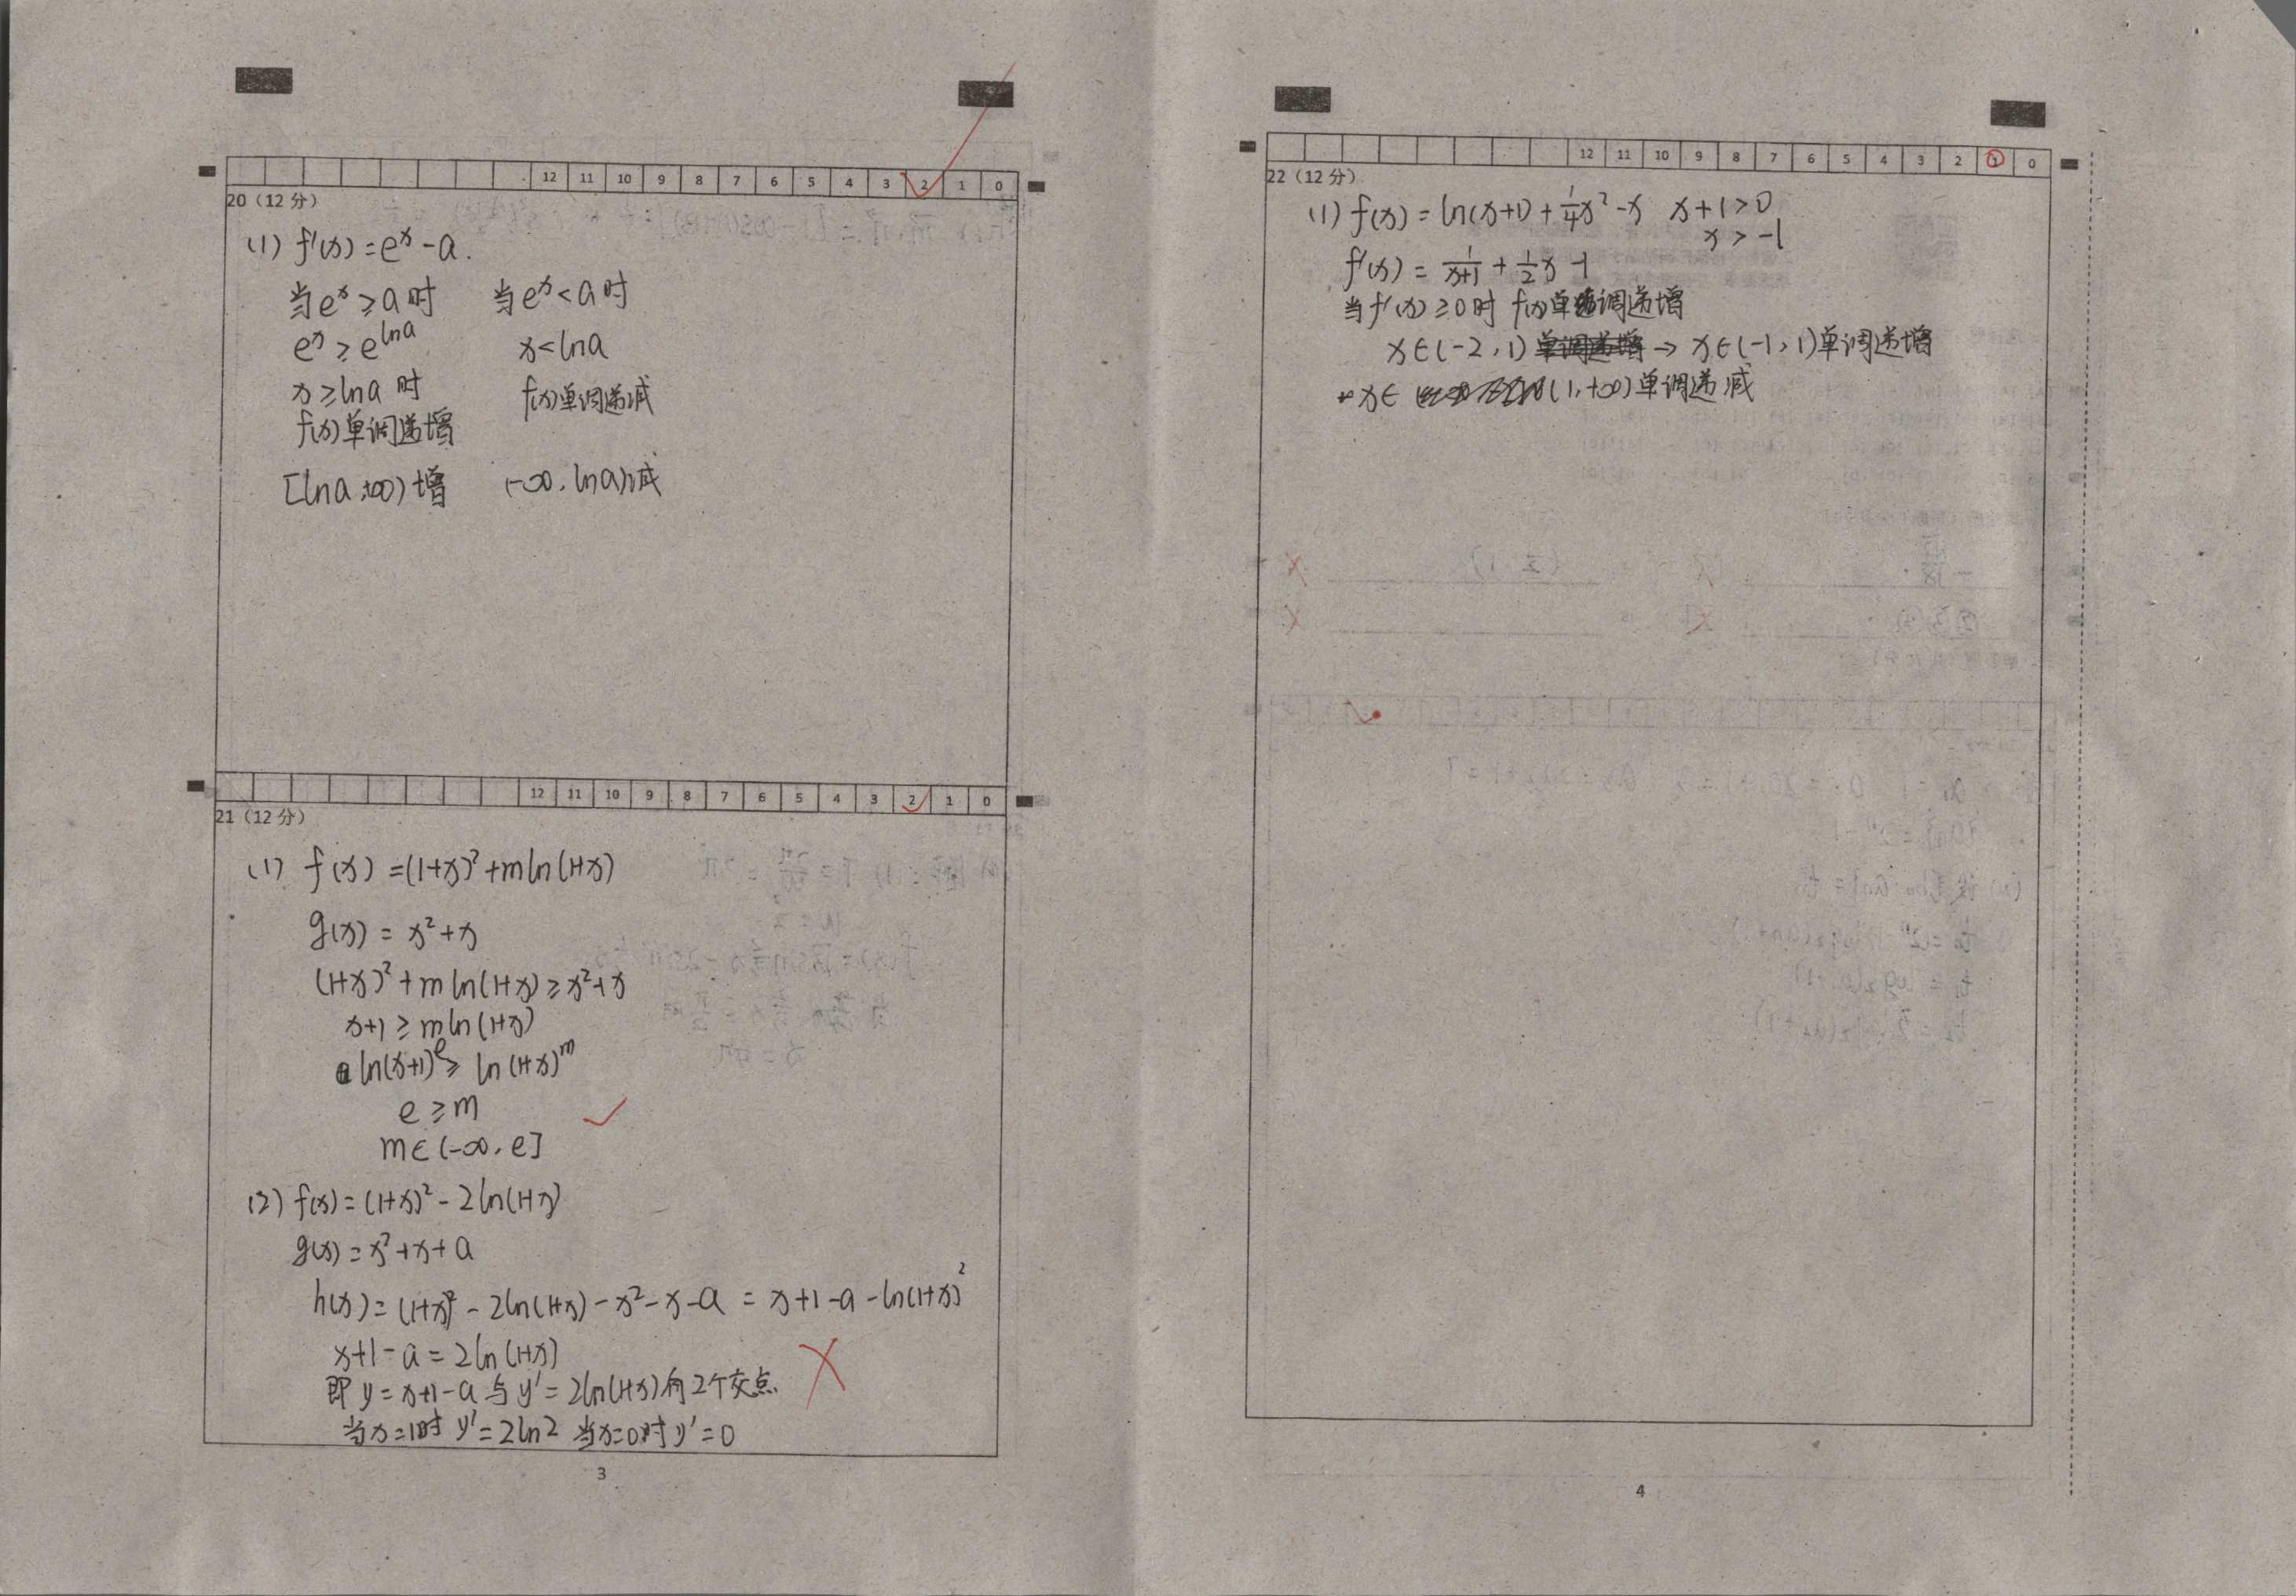 12 11 10 9 8 7 6 5 4 3 2 1 0
20（12 分）
(1) f'(x)=e^x-a.
当e^x≥a时 当e^x<a时
e^x≥e^lna x<lna
x≥lna 时 f(x)单调递减
f(x)单调递增
[lna,+∞)增 (-∞,lna)减
12 11 10 9 8 7 6 5 4 3 2 1 0
21（12 分）
(1) f(x)=(1+x)²+mln(1+x)
g(x)=x²+x
(1+x)²+mln(1+x)≥x²+x
x+1≥mln(1+x)
ln(x+1)^e≥ln(1+x)^m
e≥m
m∈(-∞,e]
(2) f(x)=(1+x)²-2ln(1+x)
g(x)=x²+x+a
h(x)=(1+x)²-2ln(1+x)-x²-x-a=x+1-a-ln(1+x)²
x+1-a=2ln(1+x)
即y=x+1-a与y'=2ln(1+x)有2个交点
当x=1时 y'=2ln2 当x=0时y'=0
3
12 11 10 9 8 7 6 5 4 3 2 1 0
22（12 分）
(1) f(x)=ln(x+1)+1/4x²-x x+1>0
x>-1
f'(x)=1/(x+1)+1/2x-1
当f'(x)≥0时 f(x)单调递增
x∈(-2,1)单调递增→x∈(-1,1)单调递增
x∈(1,+∞)单调递减
4